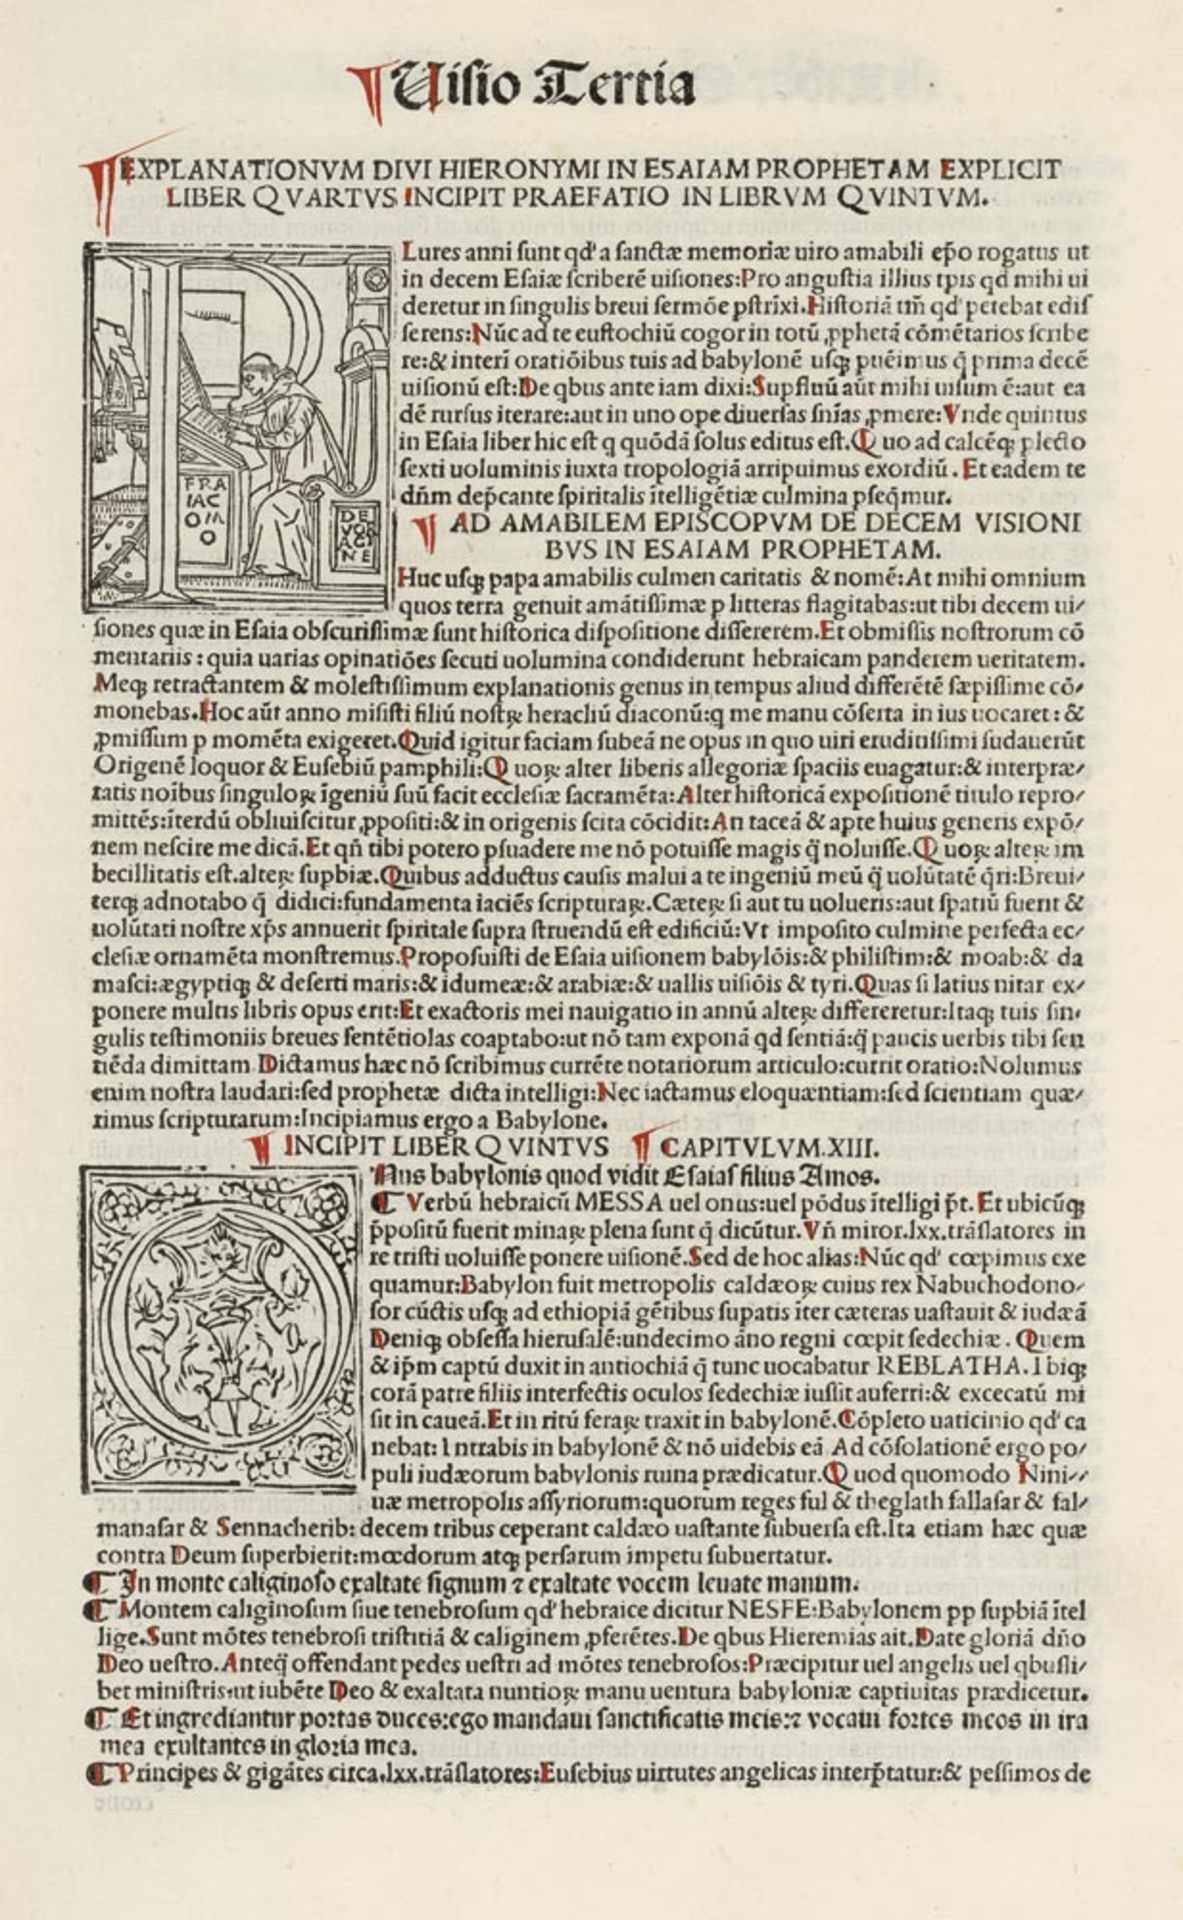 ¶ Uiſio Tertia
¶ EXPLANATIONVM DIVI HIERONYMI IN ESAIAM PROPHETAM EXPLICIT
LIBER QVARTVS INCIPIT PRAEFATIO IN LIBRVM QVINTVM.
Lures anni ſunt qd' a ſanctæ memoriæ uiro amabili ep̄o rogatus ut
in decem Eſaiæ ſcriberē uiſiones:Pro anguſtia illius tp̄is qd mihi ui
deretur in ſingulis breui ſermōe pſtrīxi.Hiſtoriā tm̄ qd' petebat ediſ
ſerens:Nūc ad te euſtochiū cogor in totū ꝓphetā cōmētarios ſcribe
re:& interī oratiōibus tuis ad babylonē uſqꝫ puēimus q̄ prima decē
uiſionū eſt:De qbus ante iam dixi:Supfluū aūt mihi uiſum ē:aut ea
dē rurſus iterare:aut in uno ope diuerſas ſnīas ꝓmere:Vnde quintus
in Eſaia liber hic eſt q quōdā ſolus editus eſt.Quo ad calcēqꝫ plecto
ſexti uoluminis iuxta tropologiā arripuimus exordiū. Et eadem te
dn̄m dep̄cante ſpiritalis ītelligētiæ culmina pſeq̄mur.
FRA
IAC
OM
O
DE
VOR
AGI
NE
¶ AD AMABILEM EPISCOPVM DE DECEM VISIONI
BVS IN ESAIAM PROPHETAM.
Huc uſqꝫ papa amabilis culmen caritatis & nomē:At mihi omnium
quos terra genuit amātiſſimæ p litteras flagitabas:ut tibi decem ui⸗
ſiones quæ in Eſaia obſcuriſſimæ ſunt hiſtorica diſpoſitione diſſererem.Et obmiſſis noſtrorum cō
mentariis:quia uarias opinatiōes ſecuti uolumina condiderunt hebraicam panderem ueritatem.
Meqꝫ retractantem & moleſtiſſimum explanationis genus in tempus aliud differētē ſæpiſſime cō⸗
monebas.Hoc aūt anno miſiſti filiū noſtꝝ heracliū diaconū:q me manu cōſerta in ius uocaret:&
ꝓmiſſum p momēta exigeret.Quid igitur faciam ſubeā ne opus in quo uiri eruditiſſimi ſudauerūt
Origenē loquor & Euſebiū pamphili:Quoꝝ alter liberis allegoriæ ſpaciis euagatur:& interpræ⸗
tatis noībus ſinguloꝝ īgeniū ſuū facit eccleſiæ ſacramēta:Alter hiſtoricā expoſitionē titulo repro⸗
mittēs:īterdū obliuiſcitur ꝓpoſiti:& in origenis ſcita cōcidit:An taceā & apte huius generis expō⸗
nem neſcire me dicā.Et qn̄ tibi potero pſuadere me nō potuiſſe magis q̄ noluiſſe.Quoꝝ alteꝝ im
becillitatis eſt.alteꝝ ſupbiæ.Quibus adductus cauſis malui a te ingeniū meū q̄ uolūtatē q̄ri:Breui⸗
terqꝫ adnotabo q̄ didici:fundamenta iaciēs ſcripturaꝝ.Cæteꝝ ſi aut tu uolueris:aut ſpatiū fuerit &
uolūtati noſtre xp̄s annuerit ſpiritale ſupra ſtruendū eſt edificiū:Vt impoſito culmine perfecta ec⸗
cleſiæ ornamēta monſtremus.Propoſuiſti de Eſaia uiſionem babylōis:& philiſtim:& moab:& da
maſci:ægyptiqꝫ & deſerti maris:& idumeæ:& arabiæ:& uallis uiſiōis & tyri.Quas ſi latius nitar ex⸗
ponere multis libris opus erit:Et exactoris mei nauigatio in annū alteꝝ differeretur:Itaqꝫ tuis ſin⸗
gulis teſtimoniis breues ſentētiolas coaptabo:ut nō tam exponā qd ſentiā:q̄ paucis uerbis tibi ſen
tiēda dimittam Dictamus hæc nō ſcribimus currēte notariorum articulo:currit oratio:Nolumus
enim noſtra laudari:ſed prophetæ dicta intelligi:Nec iactamus eloquæntiam:ſed ſcientiam quæ⸗
rimus ſcripturarum:Incipiamus ergo a Babylone.
¶ INCIPIT LIBER QVINTVS ¶ CAPITVLVM.XIII.
Nus babylonis quod vidit Eſaiaſ filius Amos.
¶ Verbū hebraicū MESSA uel onus:uel pōdus ītelligi p̄t. Et ubicūqꝫ
p̄poſitū fuerit minaꝝ plena ſunt q̄ dicūtur.Vn̄ miror.lxx.trāſlatores in
re triſti uoluiſſe ponere uiſionē.Sed de hoc alias:Nūc qd' cœpimus exe
quamur:Babylon fuit metropolis caldæoꝝ cuius rex Nabuchodono⸗
ſor cūctis uſqꝫ ad ethiopiā gētibus ſupatis īter cæteras uaſtauit & iudæā
Deniqꝫ obſeſſa hieruſalē:undecimo āno regni cœpit ſedechiæ. Quem
& ip̄m captū duxit in antiochiā q̄ tunc uocabatur REBLATHA.Ibiqꝫ
corā patre filiis interfectis oculos ſedechiæ iuſſit auferri:& excecatū mi
ſit in caueā.Et in ritū feraꝝ traxit in babylonē.Cōpleto uaticinio qd' ca
nebat: Intrabis in babylonē & nō uidebis eā Ad cōſolationē ergo po⸗
puli iudæorum babylonis ruina prædicatur.Quod quomodo Nini⸗
uæ metropolis aſſyriorum:quorum reges ful & theglath fallaſar & ſal⸗
manaſar & Sennacherib: decem tribus ceperant caldæo uaſtante ſubuerſa eſt.Ita etiam hæc quæ
contra Deum ſuperbierit:mœdorum atqꝫ perſarum impetu ſubuertatur.
¶ In monte caliginoſo exaltate ſignum ⁊ exaltate vocem leuate manum.
¶ Montem caliginoſum ſiue tenebroſum qd' hebraice dicitur NESFE:Babylonem pp ſupbiā ītel
lige.Sunt mōtes tenebroſi triſtitiā & caliginem ꝓferētes.De qbus Hieremias ait.Date gloriā dn̄o
Deo ueſtro.Anteq̄ offendant pedes ueſtri ad mōtes tenebroſos:Præcipitur uel angelis uel qbuſli⸗
bet miniſtris:ut iubēte Deo & exaltata nuntioꝝ manu uentura babyloniæ captiuitas prædicetur.
¶ Et ingrediantur portas duces:ego mandaui ſanctificatis meis:⁊ vocaui fortes meos in ira
mea exultantes in gloria mea.
¶ Principes & gigātes circa.lxx.trāſlatores:Euſebius uirtutes angelicas interp̄tatur:& peſſimos de